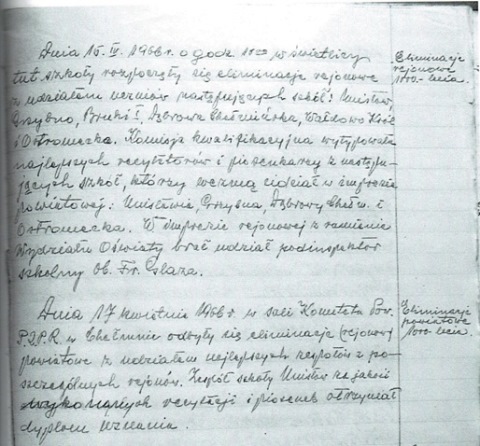 Dnia 15. IV. 1966 r. o godz 11°° w świetlicy
tut szkoły rozpoczęły się eliminacje rejonowe
z udziałem uczniów następujących szkół: Unisław,
Grzybno, Bruki, Dąbrowa Chełmińska, Wałdowo Król
i Ostromecko. Komisja kwalifikacyjna wytypowała
najlepszych recytatorów i piosenkarzy z nastę-
jących szkół, którzy wezmą udział w imprezie
powiatowej: Unisławia, Grzybna, Dąbrowy Chełm. i
Ostromecka. W imprezie rejonowej z ramienia
Wydziału Oświaty brał udział podinspektor
szkolny Ob. Fr.
Eliminacje
rejonowe
1000-lecia.
Dnia 17 kwietnia 1966 r. w sali Komitetu Pow.
P.Z.P.R. w Chełmnie odbyły się eliminacje
powiatowe z udziałem najlepszych zespołów z po-
szczególnych rejonów. Zespół szkoły Unisław za jakość
wykonanych recytacji i piosenek otrzymał
dyplom uznania.
Eliminacje
powiatowe
1000-lecia.